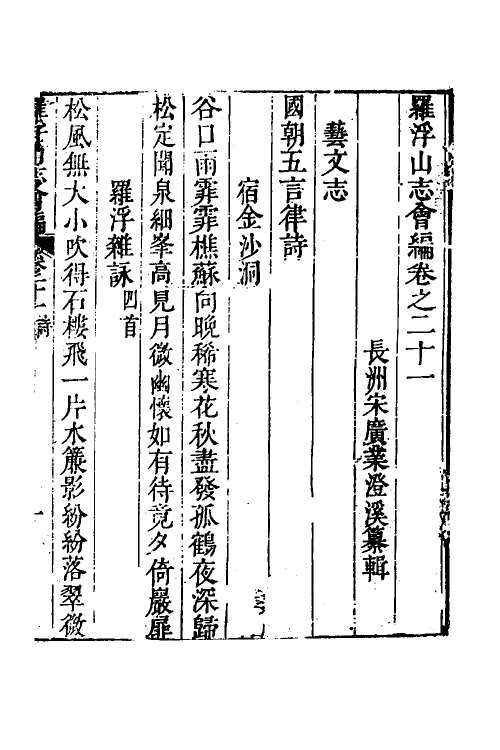 羅浮山志會編卷之二十一
長洲宋廣業澄溪纂輯
藝文志
國朝五言律詩
宿金沙洞
谷口雨霏霏樵蘇向晚稀寒花秋盡發孤鶴夜深歸
松定聞泉細峯高見月微幽懷如有待竟夕倚巖扉
羅浮雜詠四首
松風無大小吹得石樓飛一片水簾影紛紛落翠微